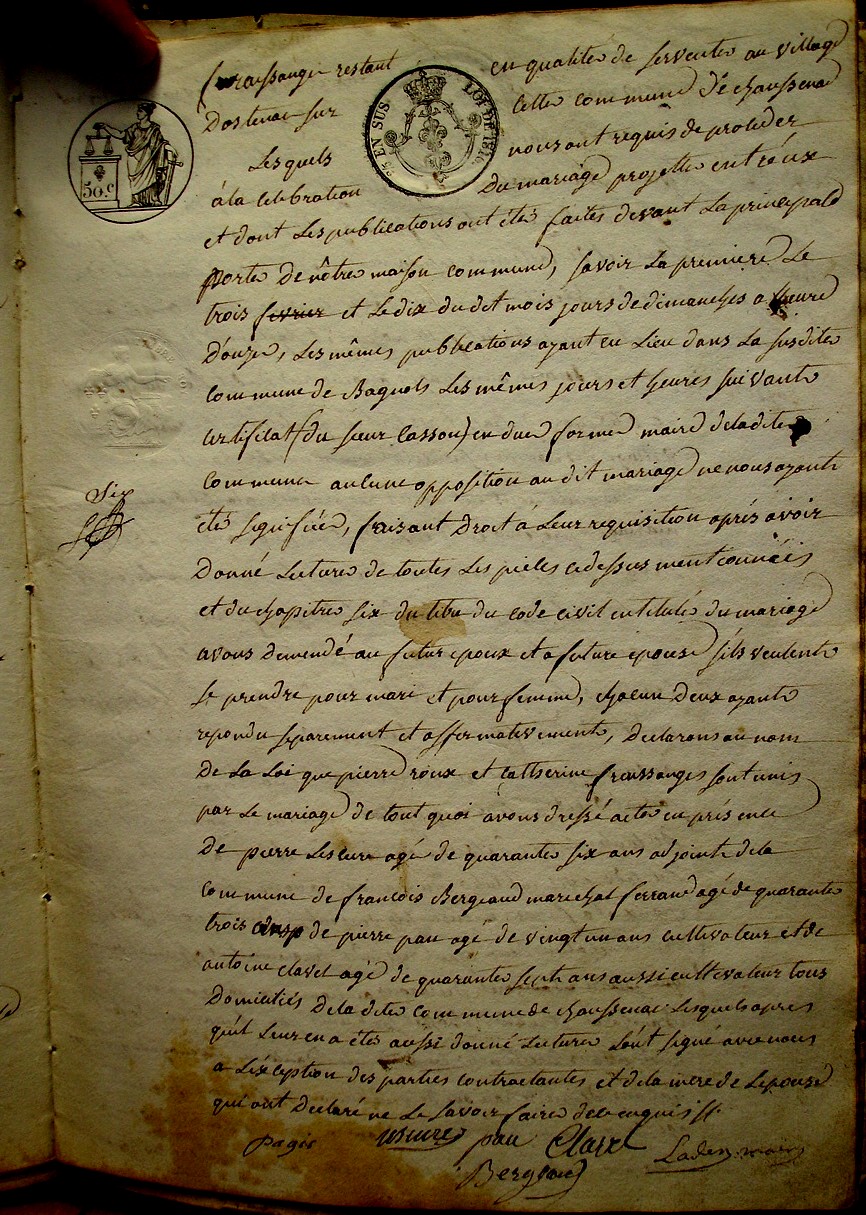 fraissange restant en qualité de servente au village
Dostenac sur cette commune de chaussenac
Lesquels nous ont requis de proceder
à la celebration du mariage projetté entréux
et dont les publications ont étés faites devant la principale
porte de nôtre maison commune, savoir la premiere le
trois fevrier et le dix du dit mois jours de dimanches a heure
d'onze, les mêmes publications ayant eu lieu dans la susdite
commune de Bagnols les mêmes jours et heures suivant
certificat (du sieur Cassou) en due forme maire de la dite
commune aucune opposition au dit mariage ne nous ayant
été signifiée, faisant droit à leur requisition aprés avoir
donné lecture de toutes les pieces cidessus mentionnées
et du chapitre six du titre du code civil intitulé du mariage
avons demendé au futur epoux et a future epouse s'ils veulent
se prendre pour mari et pour femme, chacun deux ayant
repondu separement et affermativement, declarons au nom
de la Loi que pierre roux et Catherine fraissanges sont unis
par le mariage de tout quoi avons dressé acte en présence
de pierre Lescure agé de quarante six ans adjoint de la
commune de françois Bergeaud marechal ferrand agé de quarante
trois ans de pierre pau agé de vingt un ans cultivateur et de
antoine clavel agé de quarante sept ans aussi cultivateur tous
domiciliés de la dite commune de chaussenac lesquels apres
qu'il leur en a étés aussi donné lecture l'ont signé avec nous
a l'éxception des parties contractantes et de la mere de l'epouse
qui ont declaré ne le savoir faire de ce enquis
Pagis pau Clavel maire
Bergeaud
50.c
EN SUS
LOI DE 1816
Six